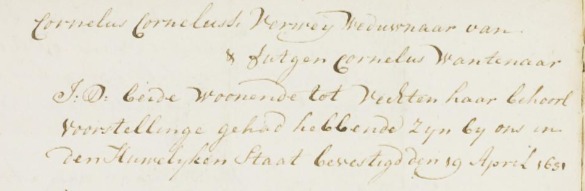 Cornelus Cornelussz Verweij Weduwnaar van
& Jutgen Cornelus Wantenaar
J: D: beide woonende tot haar behoorl
voorstellinge gehad hebbende zijn bij ons in
den Huwelijken Staat bevestigd den 19 April 1651